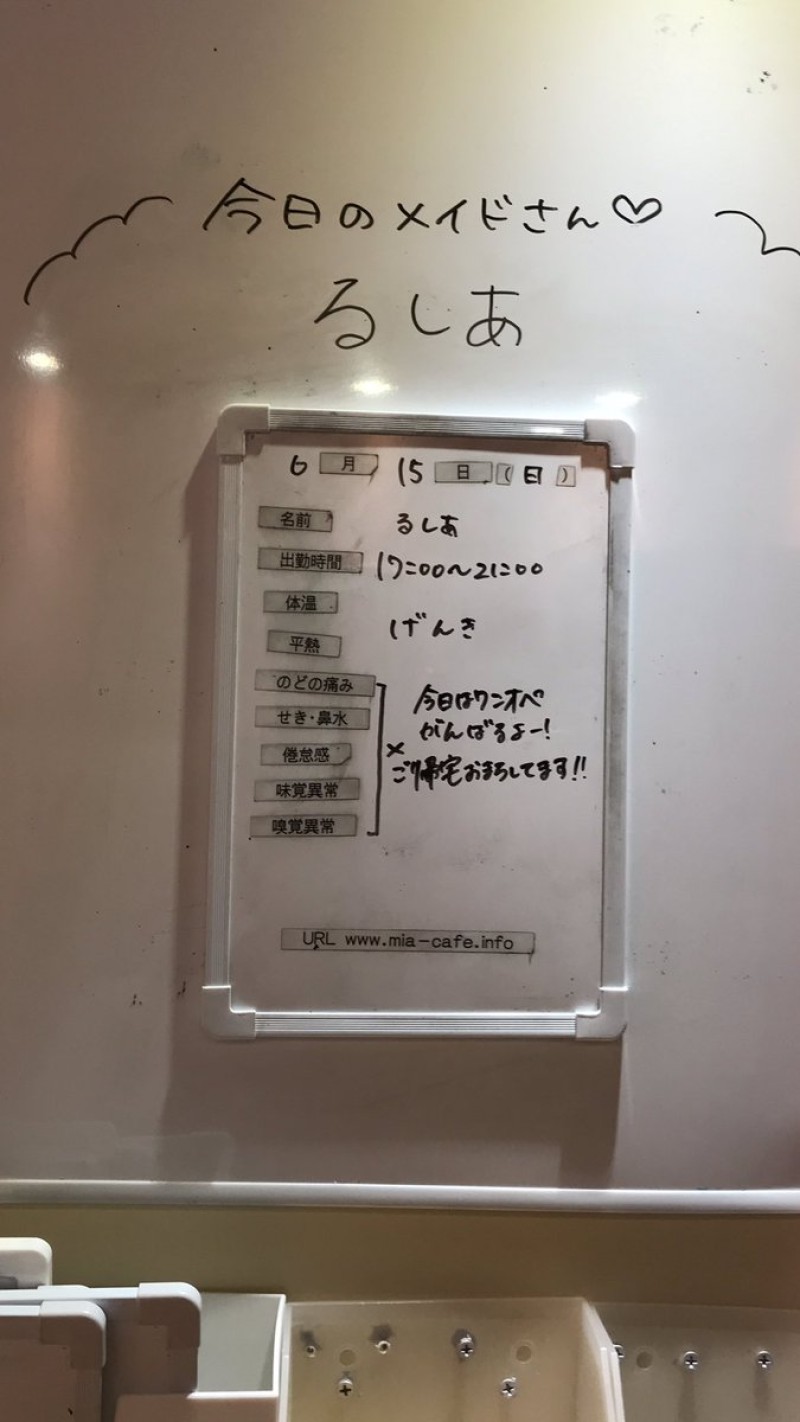 今日のメイドさん♡
るしあ
6月 15日(日)
名前 るしあ
出勤時間 17:00〜21:00
体温
平熱 げんき
のどの痛み
せき・鼻水
倦怠感 ×
味覚異常
嗅覚異常
今日はワンオペ
がんばるよー!
ご帰宅おまちしてます!!
URL www.mia-cafe.info